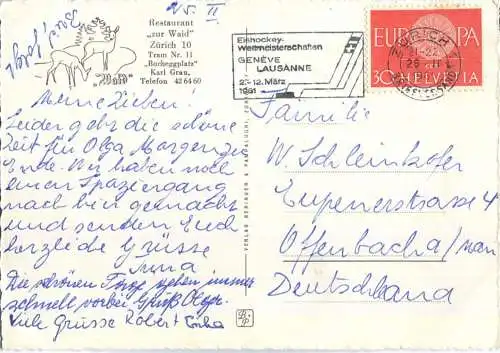 25. II
Restaurant
"zur Waid"
Zürich 10
Tram Nr. 11
"Bucheggplatz"
Karl Grau,
Telefon 42 64 60
"Waid"
Eishockey-
Weltmeisterschaften
GENÈVE
LAUSANNE
2.-12. März
1961
EUROPA
30 HELVETIA
ZÜRICH
Meine Lieben.
Leider geht die schöne
Zeit für Olga Morgen zu
Ende. Wir haben noch
einen Spaziergang
nach hier gemacht
und senden Euch
herzliche Grüsse
Anna
Die schönen Tage gehen immer
schnell vorbei Gruß Olga.
Viele Grüsse Robert
VERLAG BERINGER & PAMPALUCHI, ZÜRICH
Familie
W. Schleinkofer
Eupenerstrasse 4
Offenbach a/Main
Deutschland
B.P.